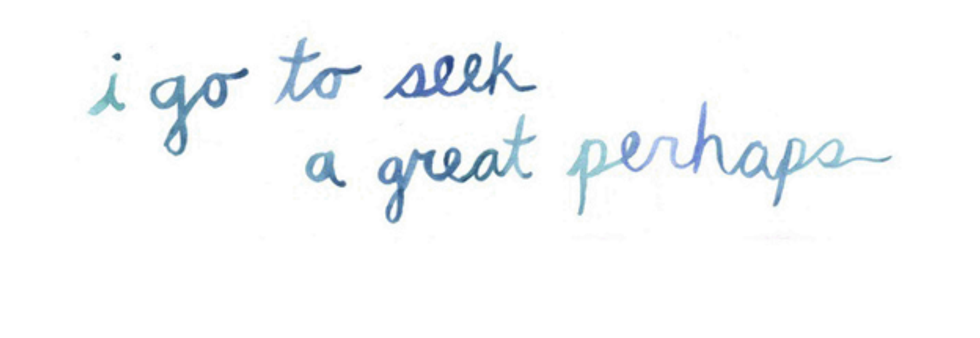 i go to seek
a great perhaps